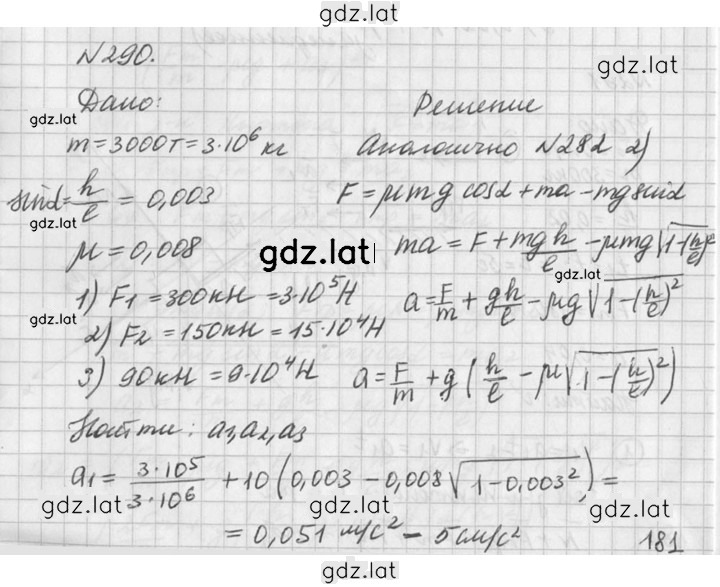 gdz.lat
№290.
Дано:
Решение
gdz.lat
gdz.lat
m = 3000т = 3·10⁶ кг
Аналогично №282 2)
sinα = h/l = 0,003
F = μmg cosα + ma − mg sinα
gdz.lat
μ = 0,008
gdz.lat
ma = F + mg h/l − μmg √(1−(h/l)²)
gdz.lat
1) F₁ = 300кН = 3·10⁵Н
a = F/m + gh/l − μg √(1−(h/l)²)
gdz.lat
2) F₂ = 150кН = 15·10⁴Н
3) 90кН = 9·10⁴Н
a = F/m + g (h/l − μ√(1−(h/l)²))
gdz.lat
gdz.lat
Найти: a₁, a₂, a₃
a₁ = 3·10⁵/3·10⁶ + 10 (0,003 − 0,008 √(1−0,003²)) =
gdz.lat
gdz.lat
gdz.lat
= 0,051 м/с² − 5см/с²
181
gdz.lat